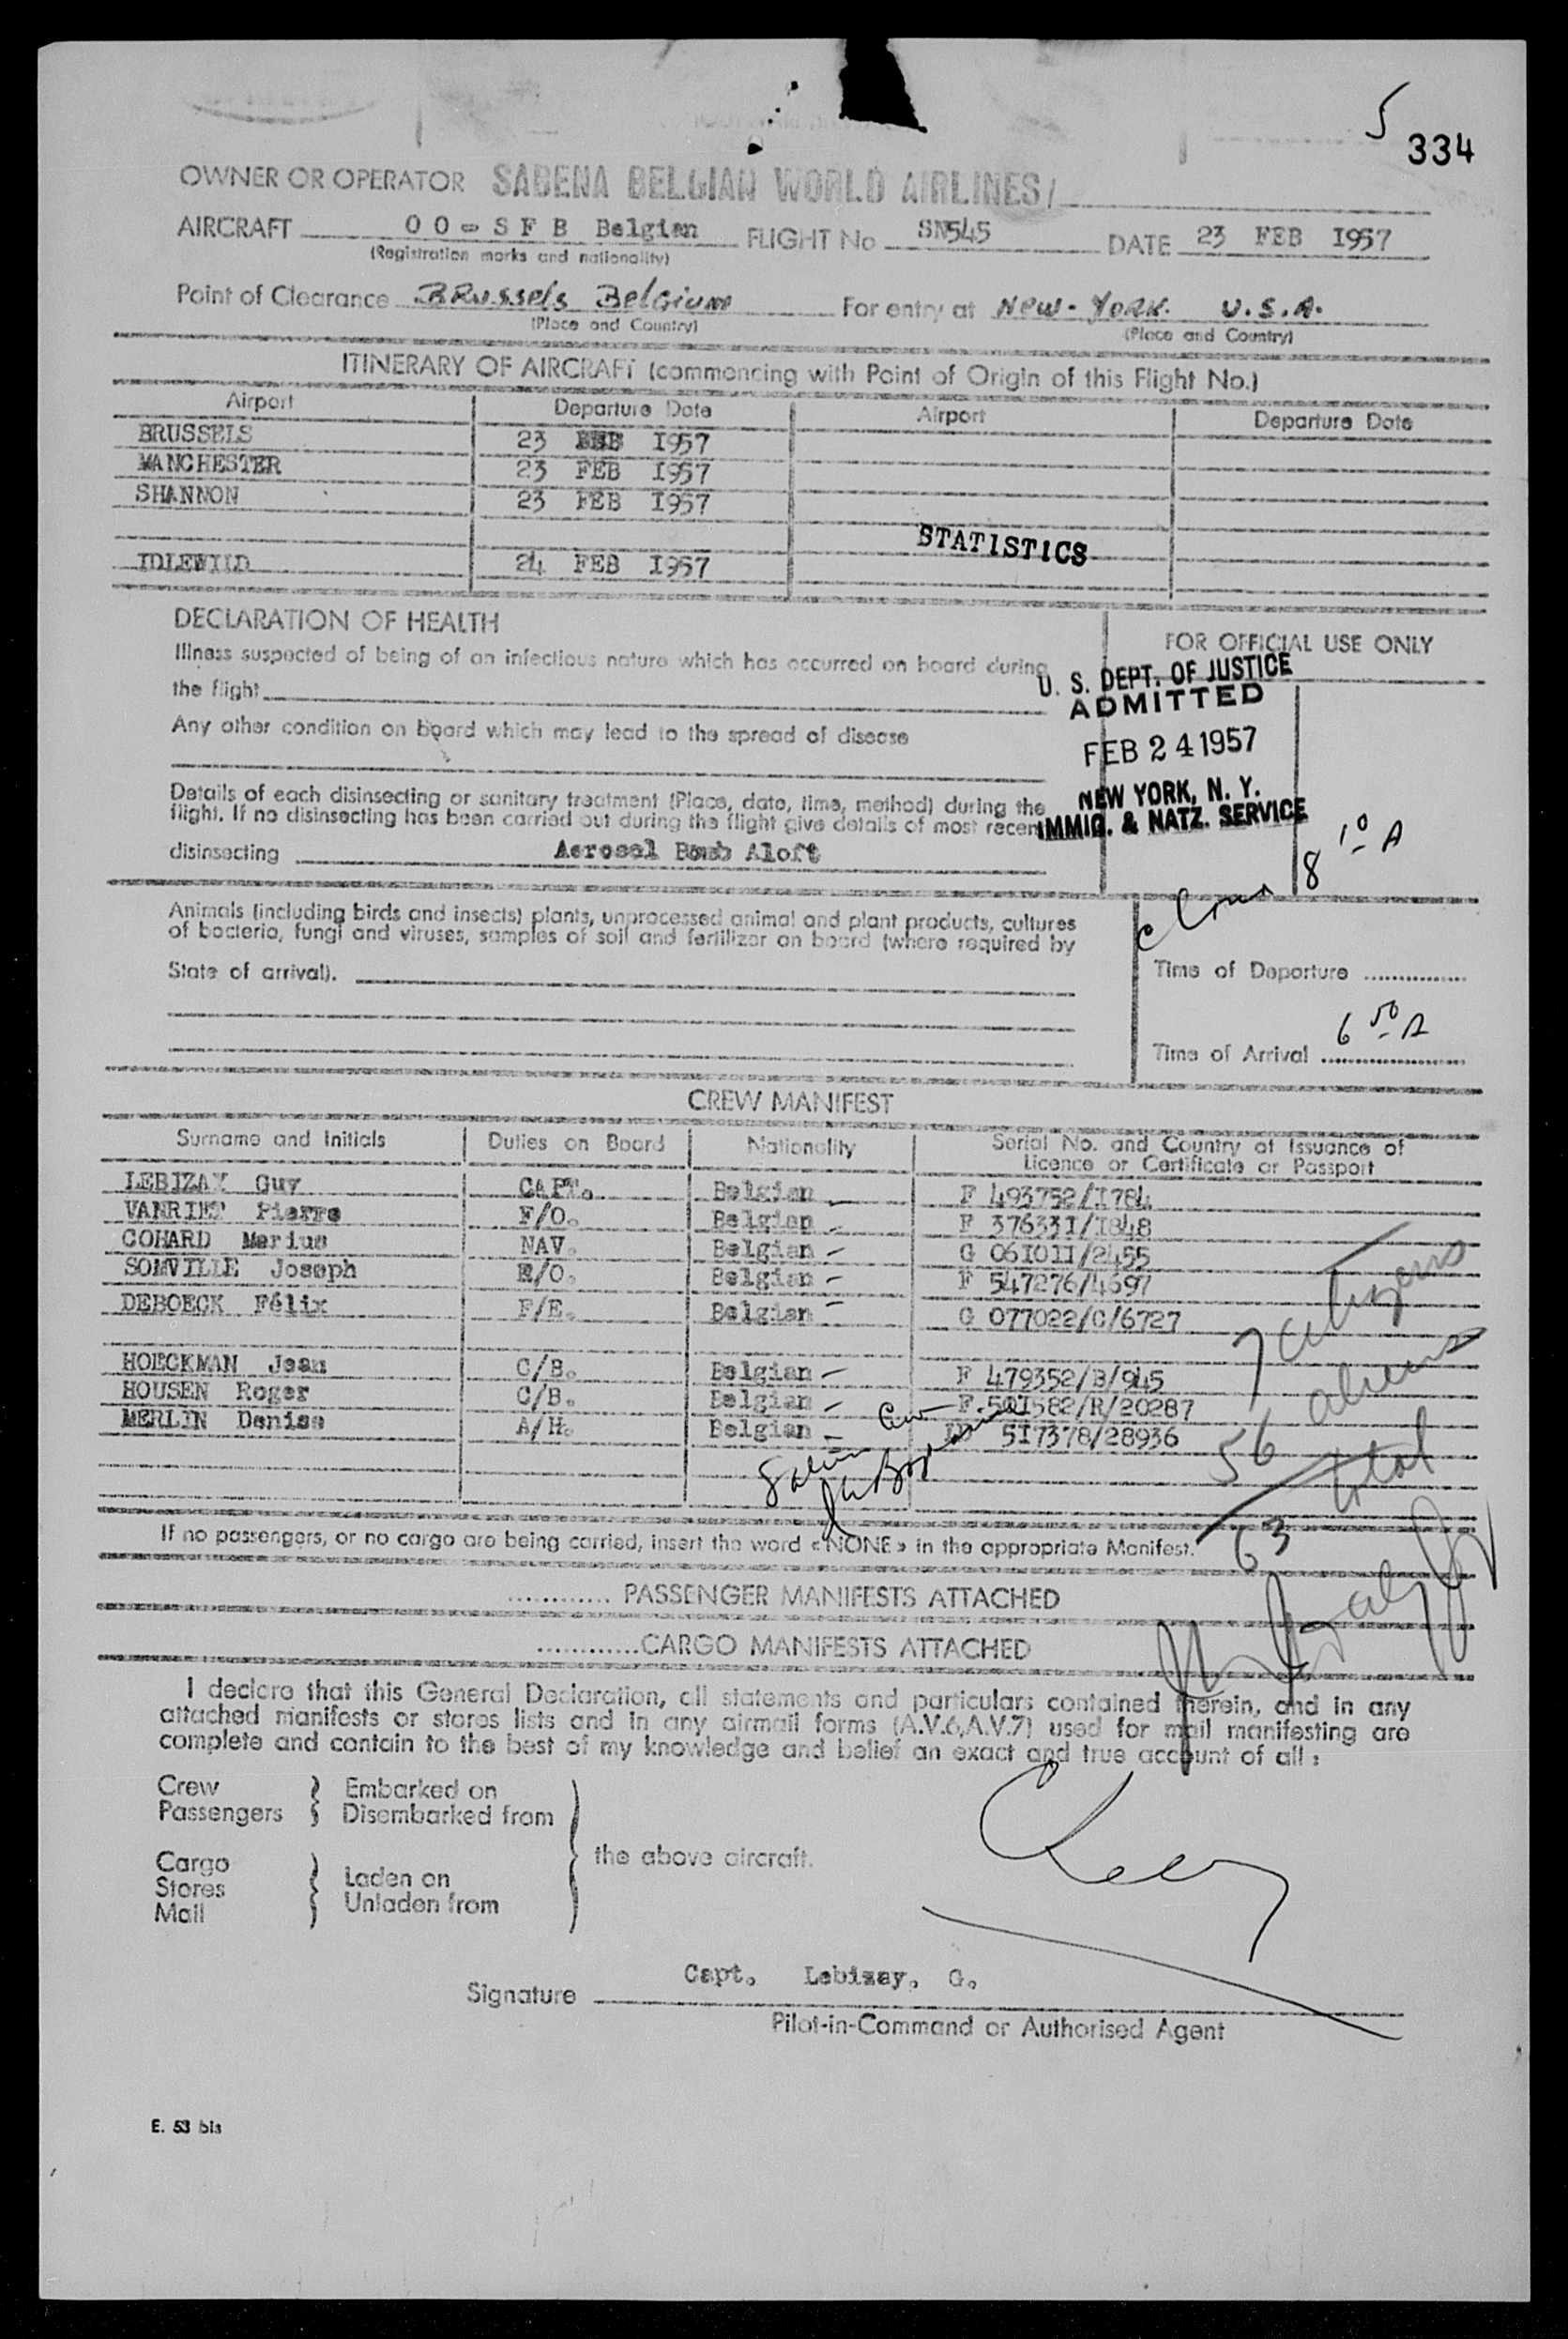 5
334
OWNER OR OPERATOR SABENA BELGIAN WORLD AIRLINES/
AIRCRAFT 0 0 - S F B Belgian FLIGHT No SN545 DATE 23 FEB 1957
(Registration marks and nationality)
Point of Clearance Brussels Belgium For entry at New-York. U.S.A.
(Place and Country) (Place and Country)
ITINERARY OF AIRCRAFT (commencing with Point of Origin of this Flight No.)
Airport Departure Date Airport Departure Date
BRUSSELS 23 FEB I957
MANCHESTER 23 FEB I957
SHANNON 23 FEB I957
STATISTICS
IDLEWILD 24 FEB I957
DECLARATION OF HEALTH
FOR OFFICIAL USE ONLY
Illness suspected of being of an infectious nature which has occurred on board during
the flight
U. S. DEPT. OF JUSTICE
ADMITTED
FEB 24 1957
NEW YORK, N. Y.
IMMIG. & NATZ. SERVICE
Any other condition on board which may lead to the spread of disease
Details of each disinsecting or sanitary treatment (Place, date, time, method) during the
flight. If no disinsecting has been carried out during the flight give details of most recent
disinsecting Aerosol Bomb Aloft
8 10 A
Animals (including birds and insects) plants, unprocessed animal and plant products, cultures
of bacteria, fungi and viruses, samples of soil and fertilizer on board (where required by
State of arrival).
Time of Departure
6 50 A
Time of Arrival
CREW MANIFEST
Surname and Initials Duties on Board Nationality Serial No. and Country of Issuance of
Licence or Certificate or Passport
LEBIZAY Guy CAPT. Belgian F 493752/I784
VANRIET Pierre F/O. Belgian F 37633I/I848
COHARD Marius NAV. Belgian G 06I0II/2455
SOMVILLE Joseph R/O. Belgian F 547276/4697
DEBOECK Félix F/E. Belgian G 077022/C/6727
HOECKMAN Jean C/B. Belgian F 479352/B/945
HOUSEN Roger C/B. Belgian F 50I582/R/20287
MERLIN Denise A/H. Belgian 5I7378/28936
7 citizens
56 aliens
63 total
If no passengers, or no cargo are being carried, insert the word «NONE» in the appropriate Manifest.
............ PASSENGER MANIFESTS ATTACHED
............CARGO MANIFESTS ATTACHED
I declare that this General Declaration, all statements and particulars contained therein, and in any
attached manifests or stores lists and in any airmail forms (A.V.6,A.V.7) used for mail manifesting are
complete and contain to the best of my knowledge and belief an exact and true account of all :
Crew Embarked on
Passengers Disembarked from
the above aircraft.
Cargo
Stores Laden on
Mail Unladen from
Capt. Lebizay, G.
Signature
Pilot-in-Command or Authorised Agent
E. 53 bis